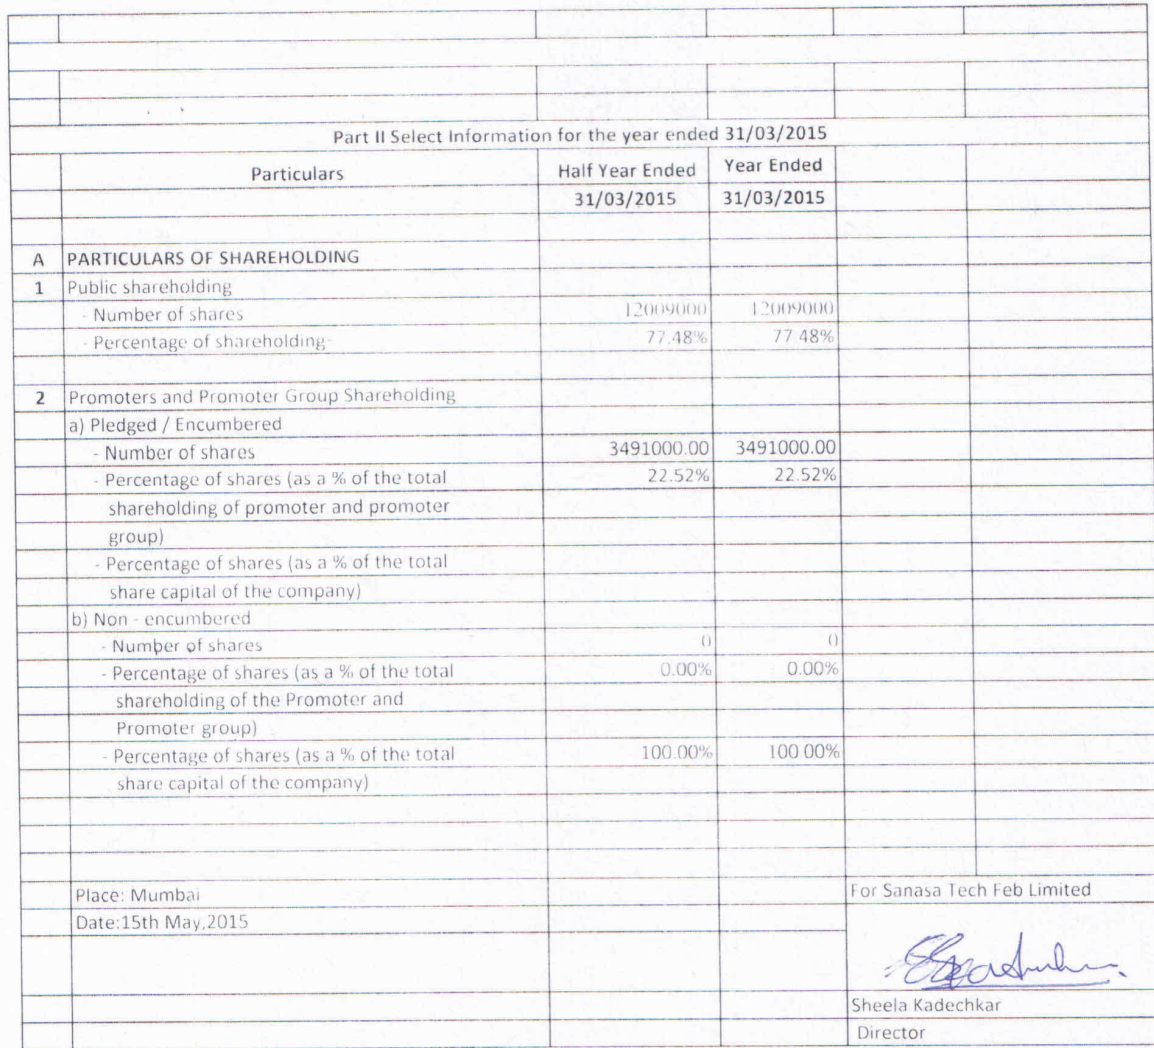 Part II Select Information for the year ended 31/03/2015
Particulars Half Year Ended Year Ended
31/03/2015 31/03/2015
A PARTICULARS OF SHAREHOLDING
1 Public shareholding
- Number of shares 12009000 12009000
- Percentage of shareholding 77.48% 77.48%
2 Promoters and Promoter Group Shareholding
a) Pledged / Encumbered
- Number of shares 3491000.00 3491000.00
- Percentage of shares (as a % of the total 22.52% 22.52%
shareholding of promoter and promoter
group)
- Percentage of shares (as a % of the total
share capital of the company)
b) Non - encumbered
- Number of shares 0 0
- Percentage of shares (as a % of the total 0.00% 0.00%
shareholding of the Promoter and
Promoter group)
- Percentage of shares (as a % of the total 100.00% 100.00%
share capital of the company)
Place: Mumbai For Sanasa Tech Feb Limited
Date:15th May,2015
Sheela Kadechkar
Director